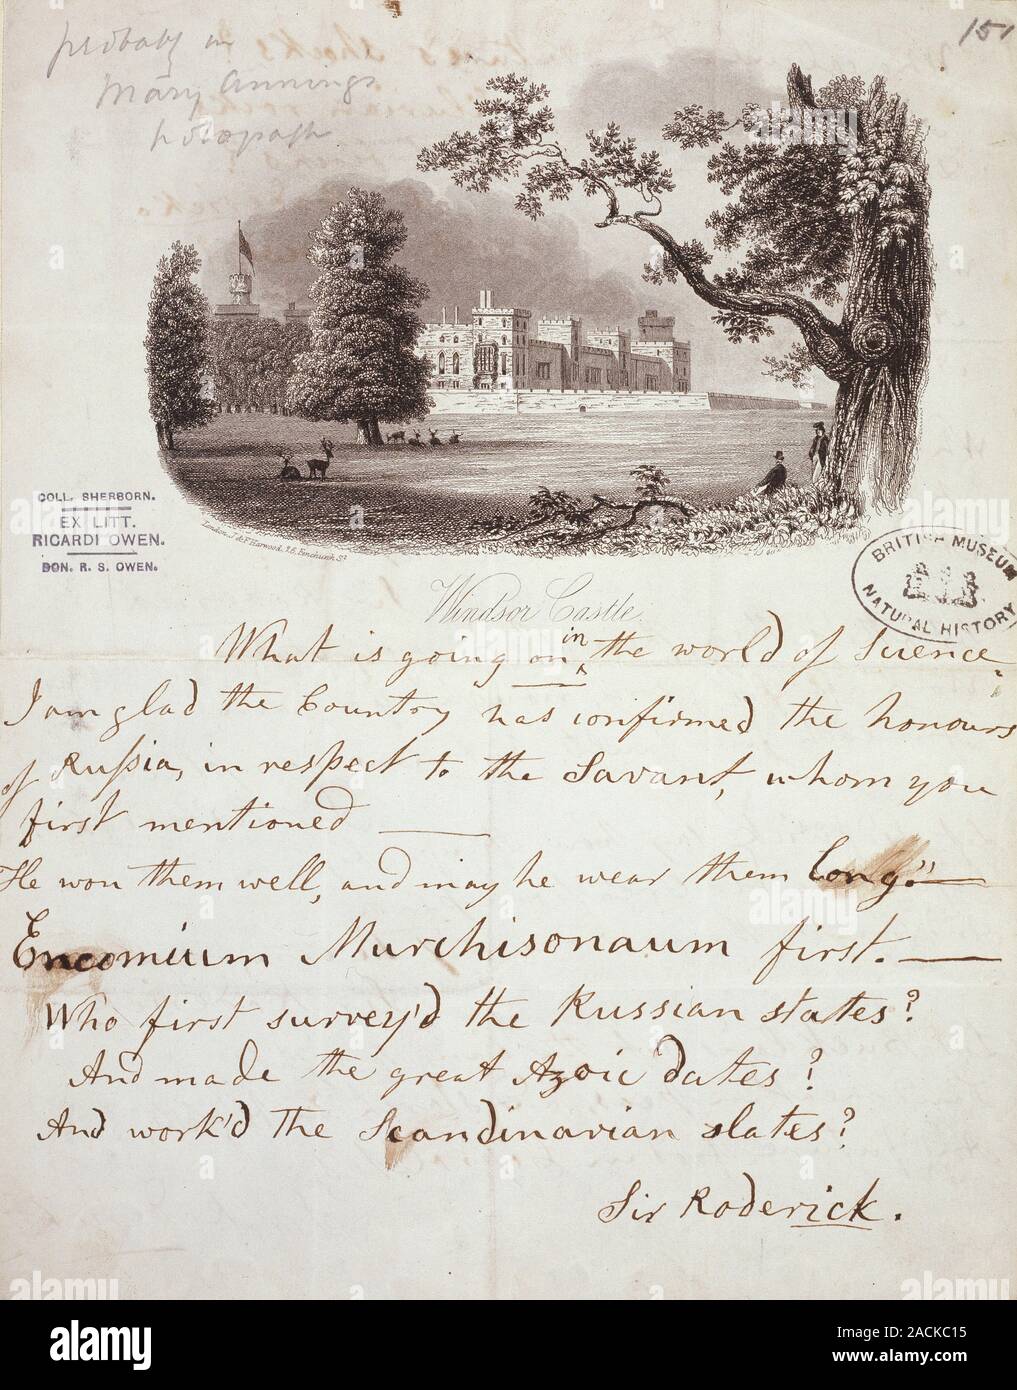 probably in
Mary Annings
holograph
151
COLL. SHERBORN.
EX LITT.
RICARDI OWEN.
DON. R. S. OWEN.
London, J. & F. Harwood, 26, Fenchurch St.
BRITISH MUSEUM
NATURAL HISTORY
Windsor Castle.
What is going on in the world of Science.
I am glad the Country has confirmed the honours
of Russia, in respect to the Savant, whom you
first mentioned —
He won them well, and may he wear them long." —
Encomium Murchisonaum first. —
Who first survey'd the Russian states?
And made the great Azoic dates?
And work'd the Scandinavian slates?
Sir Roderick.
alamy
alamy
Image ID: ACKC15
www.alamy.com